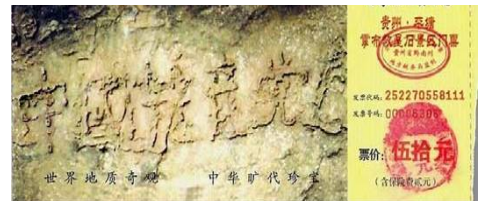 中国共产党
世界地质奇观 中华旷代珍宝
贵州·平塘
掌布藏字石景区门票
发票代码：252270558111
发票号码：00006306
票价：伍拾元
（含保险费贰元）